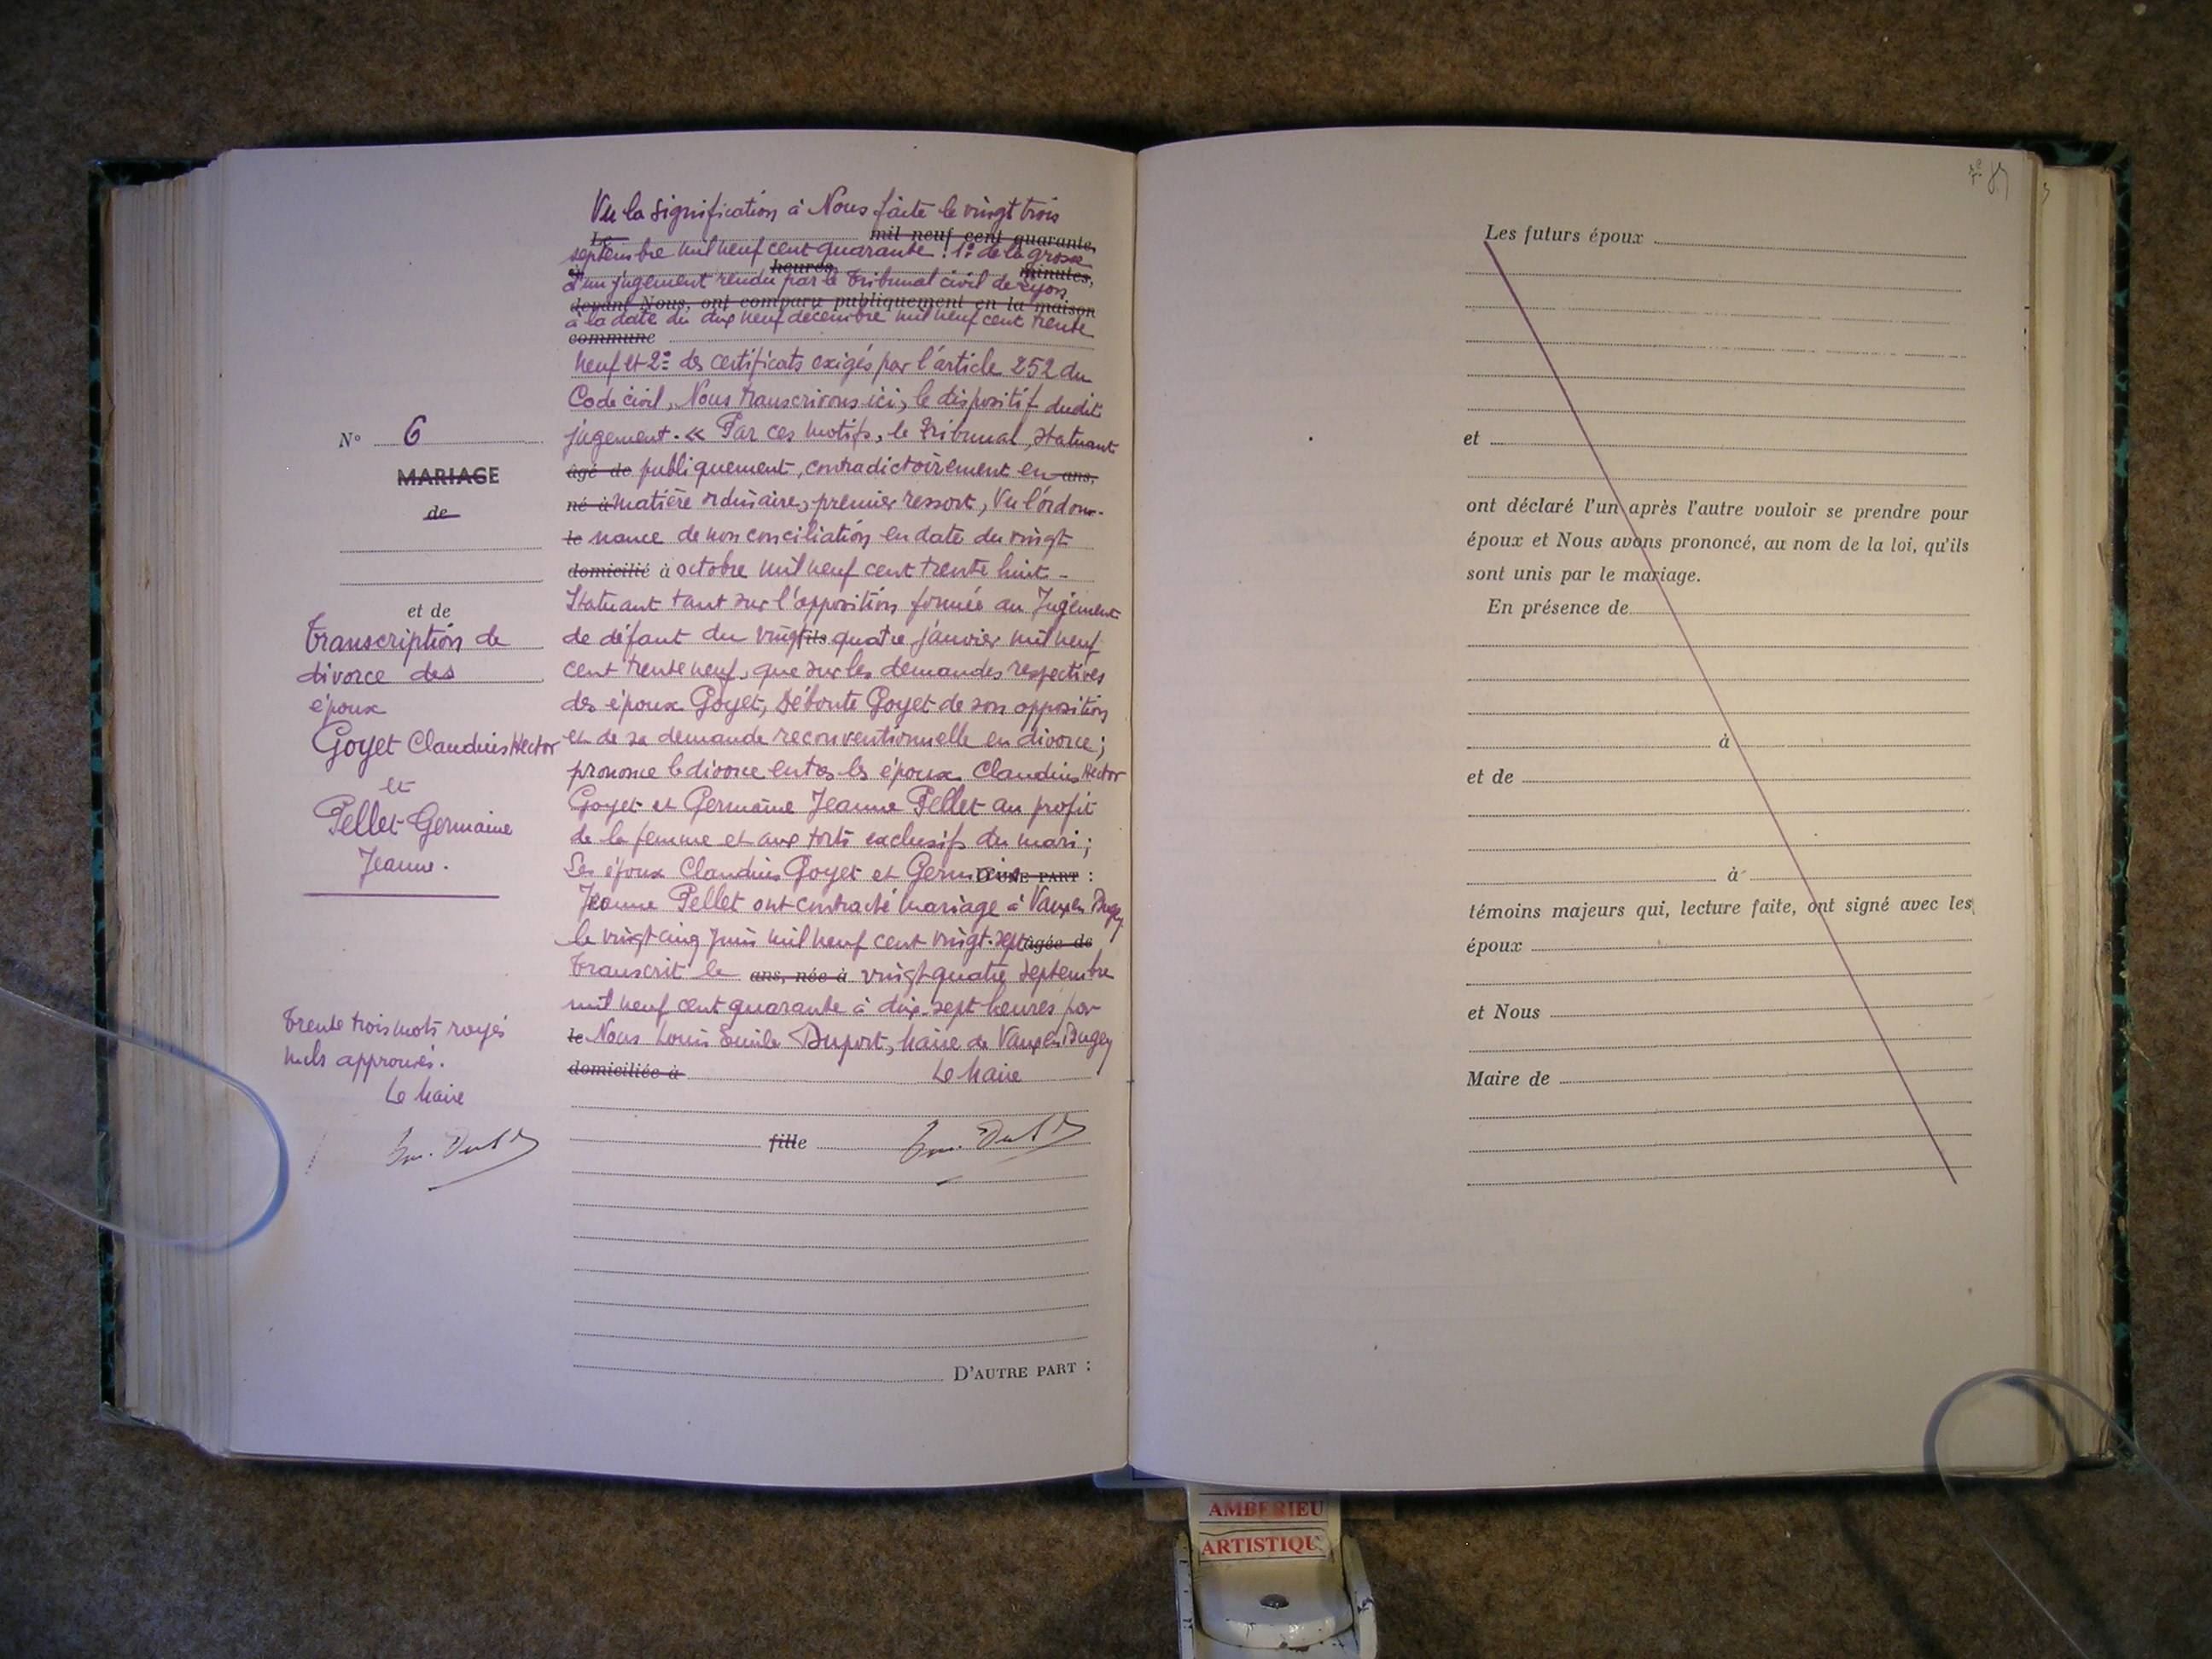 N° 6
MARIAGE
de
et de
Transcription de
divorce des
époux
Goyet Claudius Hector
et
Pellet Germaine
Jeanne.
Trente trois mots rayés
nuls approuvés.
Le Maire
Vu la signification à Nous faite le vingt trois
Le mil neuf cent quarante
septembre mil neuf cent quarante : 1° de la grosse
à heures minutes,
d'un jugement rendu par le Tribunal civil de Lyon
devant Nous, ont comparu publiquement en la maison
à la date du dix neuf décembre mil neuf cent trente
commune
neuf et 2° des certificats exigés par l'article 252 du
Code civil, Nous transcrivons ici, le dispositif dudit
jugement. « Par ces motifs, le Tribunal, statuant
âgé de publiquement, contradictoirement en ans,
né à matière ordinaire, premier ressort, Vu l'ordon-
le nance de non conciliation en date du vingt
domicilié à octobre mil neuf cent trente huit -
Statuant tant sur l'opposition formée au Jugement
de défaut du vingt fils quatre janvier mil neuf
cent trente neuf, que sur les demandes respectives
des époux Goyet, Déboute Goyet de son opposition
et de sa demande reconventionnelle en divorce;
prononce le divorce entre les époux Claudius Hector
Goyet et Germaine Jeanne Pellet au profit
de la femme et aux torts exclusifs du mari;
Les époux Claudius Goyet et Germaine D'UNE PART :
Jeanne Pellet ont contracté mariage à Vaux en Bugey
le vingt cinq Juin mil neuf cent vingt-sept âgée de
Transcrit le ans, née à vingt quatre septembre
mil neuf cent quarante à dix-sept heures par
le Nous Louis Emile Duport, Maire de Vaux en Bugey
domiciliée à Le Maire
fille
D'AUTRE PART :
Les futurs époux
et
ont déclaré l'un après l'autre vouloir se prendre pour
époux et Nous avons prononcé, au nom de la loi, qu'ils
sont unis par le mariage.
En présence de
à
et de
à
témoins majeurs qui, lecture faite, ont signé avec les
époux
et Nous
Maire de
AMBERIEU
ARTISTIQU